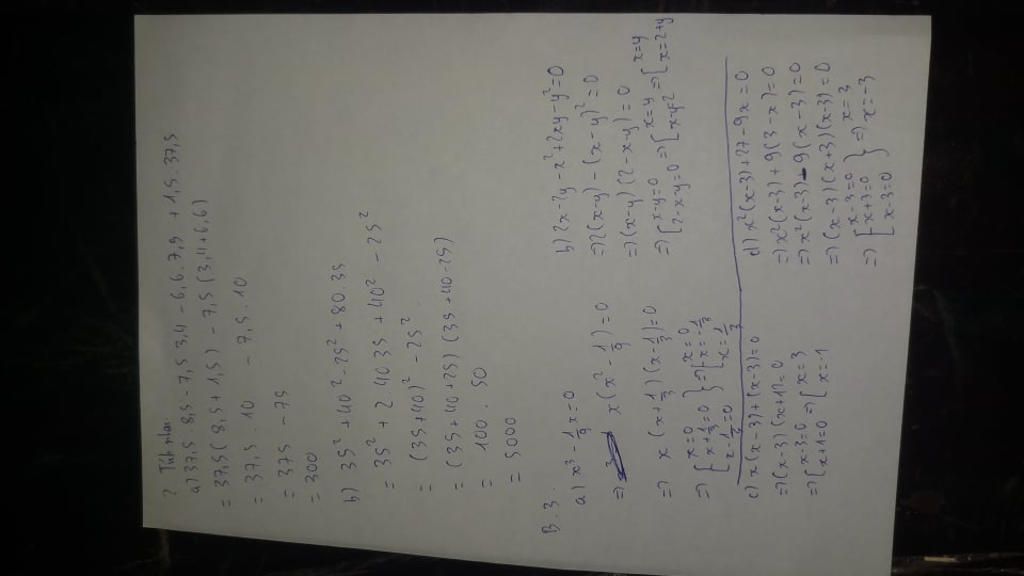 2 Tính nhanh
a) 37,5 . 8,5 - 7,5 3,4 - 6,6 . 7,5 + 1,5 . 37,5
= 37,5 ( 8,5 + 1,5 ) - 7,5 ( 3,4 + 6,6 )
= 37,5 . 10 - 7,5 . 10
= 375 - 75
= 300
b) 35² + 40² - 25² + 80 . 35
= 35² + 2 40 35 + 40² - 25²
= (35 + 40)² - 25²
= (35 + 40 + 25) (35 + 40 - 25)
= 100 . 50
= 5000
B.3.
a) x³ - 1/9 x = 0
=> x ( x² - 1/9 ) = 0
=> x (x + 1/3) (x - 1/3) = 0
=> [ x = 0
x + 1/3 = 0
x - 1/3 = 0 } => [ x = 0
x = -1/3
x = 1/3
b) 2x - 2y - x² + 2xy - y² = 0
=> 2(x - y) - (x - y)² = 0
=> (x - y) (2 - x - y) = 0
=> [ x - y = 0
2 - x - y = 0 => [ x = y
x - y = 2 => [ x = y
x = 2 + y
c) x(x - 3) + (x - 3) = 0
=> (x - 3) (x + 1) = 0
=> [ x - 3 = 0
x + 1 = 0 => [ x = 3
x = -1
d) x² (x - 3) + 27 - 9x = 0
=> x² (x - 3) + 9 (3 - x) = 0
=> x² (x - 3) - 9 (x - 3) = 0
=> (x - 3) (x + 3) (x - 3) = 0
=> [ x - 3 = 0
x + 3 = 0
x - 3 = 0 } => x = 3
x = -3